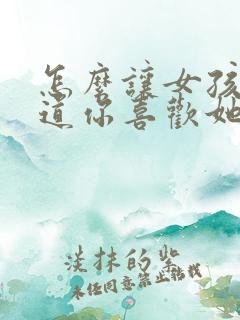 怎麼讓女孩
道你喜歡她
淡抹的紫
未任同意禁止转载